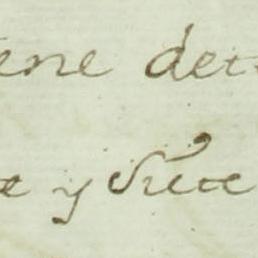 ene det
e y Siete